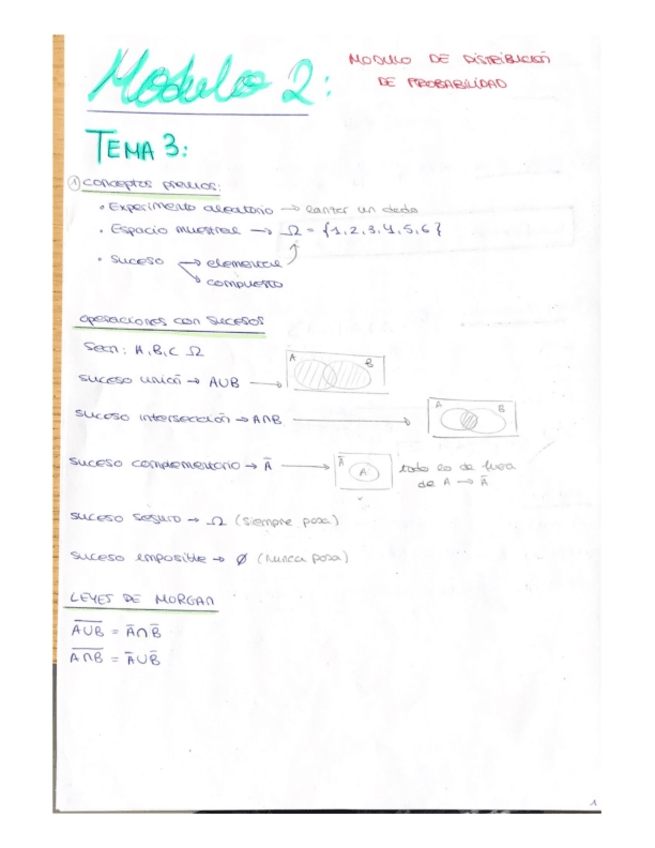 Modulo 2:
MODULO DE DISTRIBUCIÓN
DE PROBABILIDAD
TEMA 3:
① conceptos previos:
• Experimento aleatorio → lanzar un dado
• Espacio muestral → Ω = {1, 2, 3, 4, 5, 6}
• suceso → elemental
↘ compuesto
operaciones con sucesos
Sean: A, B, C Ω
suceso unión → A∪B →
A B
suceso intersección → A∩B →
A B
suceso complementario → Ā →
Ā A
todo lo de fuera
de A → Ā
suceso seguro → Ω (siempre pasa)
suceso imposible → ∅ (nunca pasa)
LEYES DE MORGAN
A̅∪̅B̅ = Ā∩B̅
A̅∩̅B̅ = Ā∪B̅
1